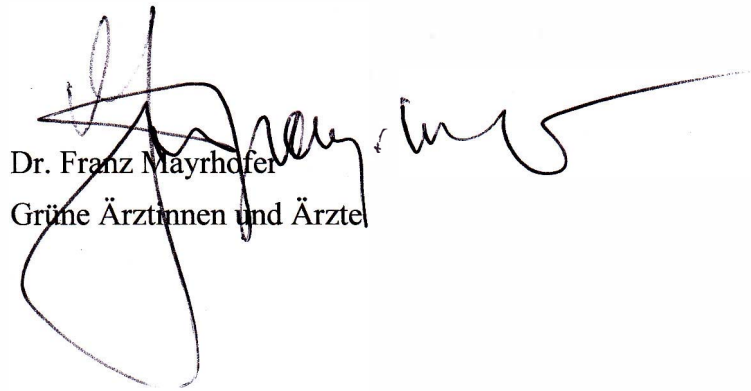 Dr. Franz Mayrhofer
Grüne Ärztinnen und Ärzte